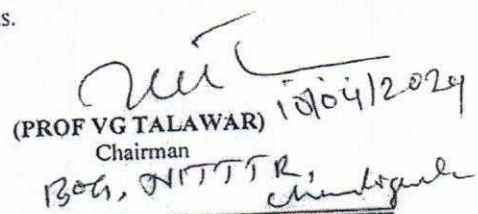 s.
10/04/2024
(PROF VG TALAWAR)
Chairman
BOG, NITTTR,
Chandigarh